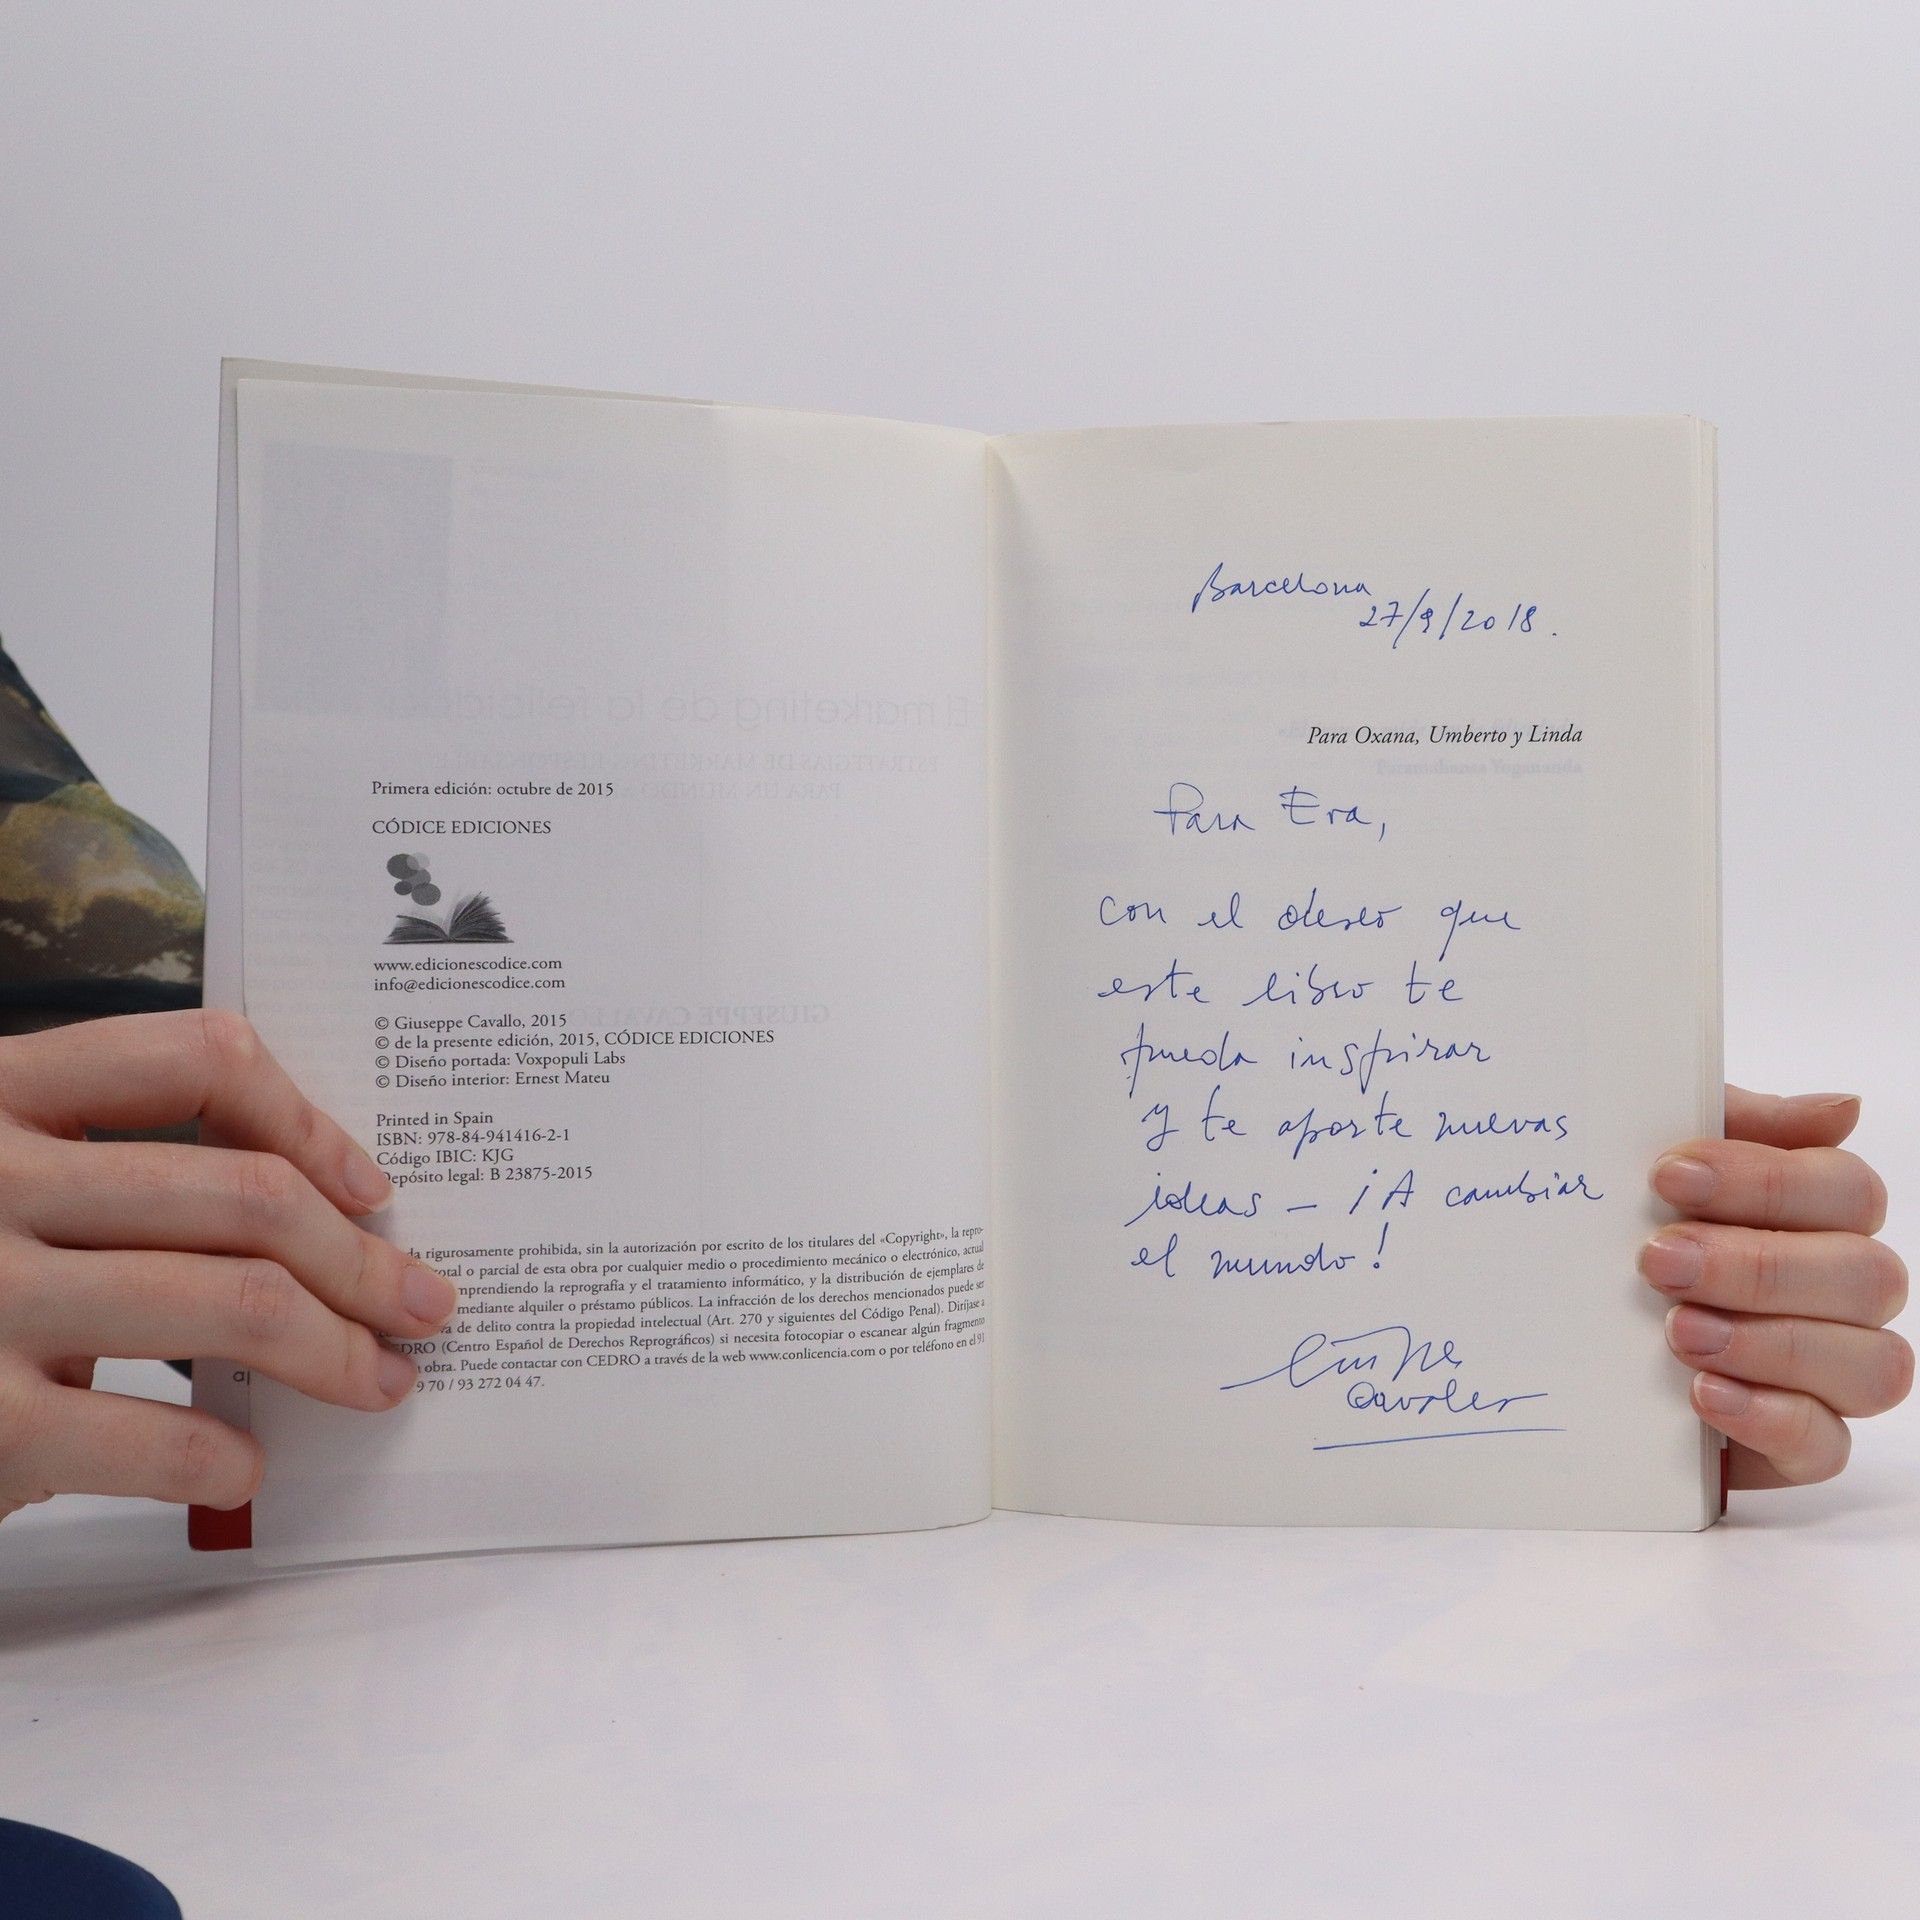 Primera edición: octubre de 2015
CÓDICE EDICIONES
www.edicionescodice.com
info@edicionescodice.com
© Giuseppe Cavallo, 2015
© de la presente edición, 2015, CÓDICE EDICIONES
© Diseño portada: Voxpopuli Labs
© Diseño interior: Ernest Mateu
Printed in Spain
ISBN: 978-84-941416-2-1
Código IBIC: KJG
Depósito legal: B 23875-2015
rigurosamente prohibida, sin la autorización por escrito de los titulares del «Copyright», la repro-
total o parcial de esta obra por cualquier medio o procedimiento mecánico o electrónico, actual
mprendiendo la reprografía y el tratamiento informático, y la distribución de ejemplares de
mediante alquiler o préstamo públicos. La infracción de los derechos mencionados puede ser
de delito contra la propiedad intelectual (Art. 270 y siguientes del Código Penal). Diríjase a
CEDRO (Centro Español de Derechos Reprográficos) si necesita fotocopiar o escanear algún fragmento
obra. Puede contactar con CEDRO a través de la web www.conlicencia.com o por teléfono en el 91
9 70 / 93 272 04 47.
Barcelona
27/9/2018.
Para Oxana, Umberto y Linda
Para Eva,
con el deseo que
este libro te
pueda inspirar
y te aporte nuevas
ideas – ¡A cambiar
el mundo!
Giuseppe
Cavallo